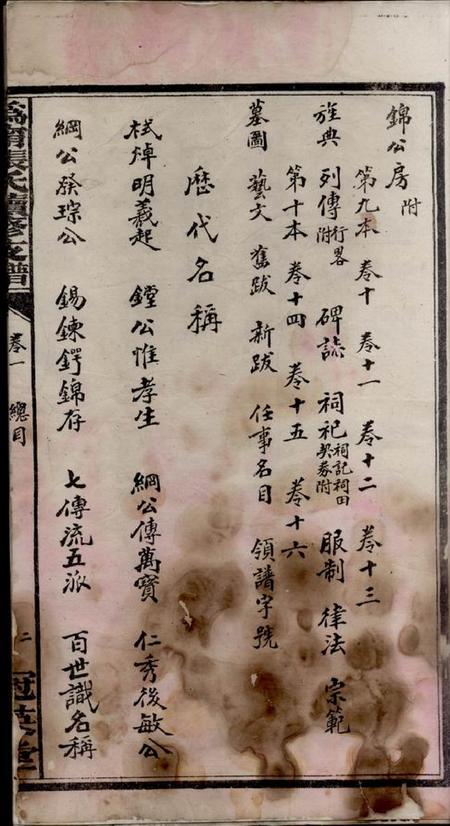 錦公房附
第九本 卷十 卷十一 卷十二 卷十三
旌典 列傳行畧附 碑誌 祠祀祠記祠田契券附 服制 律法 宗範
第十本 卷十四 卷十五 卷十六
墓圖 藝文 舊跋 新跋 任事名目 領譜字號
歷代名稱
栻焯明義起 鏜公惟孝生 綱公傳萬寶 仁秀後敏公
綱公發琮公 錫鍊鍔錦存 七傳流五派 百世識名稱
張氏續修支譜
卷一 總目
二